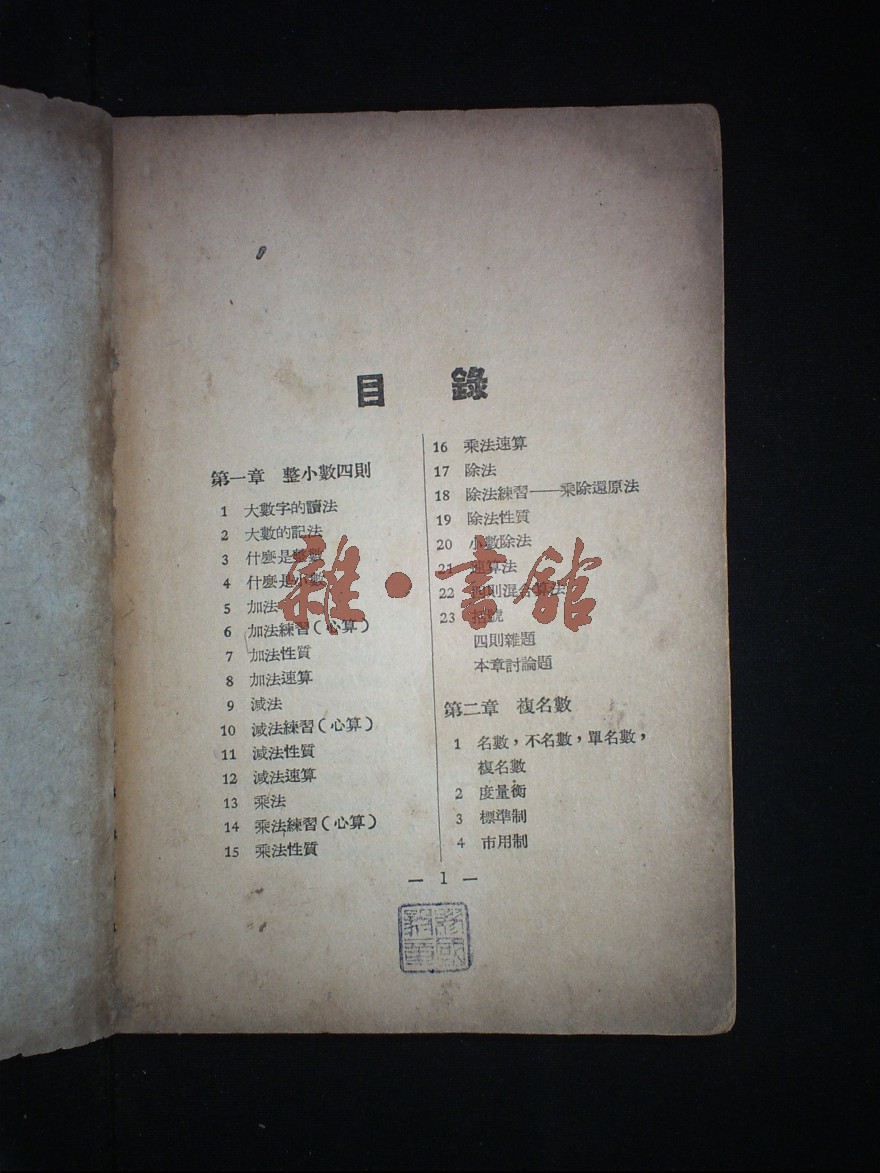 目錄
第一章 整小數四則
1 大數字的讀法
2 大數的記法
3 什麼是整數
4 什麼是小數
5 加法
6 加法練習(心算)
7 加法性質
8 加法速算
9 減法
10 減法練習(心算)
11 減法性質
12 減法速算
13 乘法
14 乘法練習(心算)
15 乘法性質
16 乘法速算
17 除法
18 除法練習——乘除還原法
19 除法性質
20 小數除法
21 速算法
22 四則混合算法
23 括號
四則雜題
本章討論題
第二章 複名數
1 名數,不名數,單名數,
複名數
2 度量衡
3 標準制
4 市用制
— 1 —
雜·書館